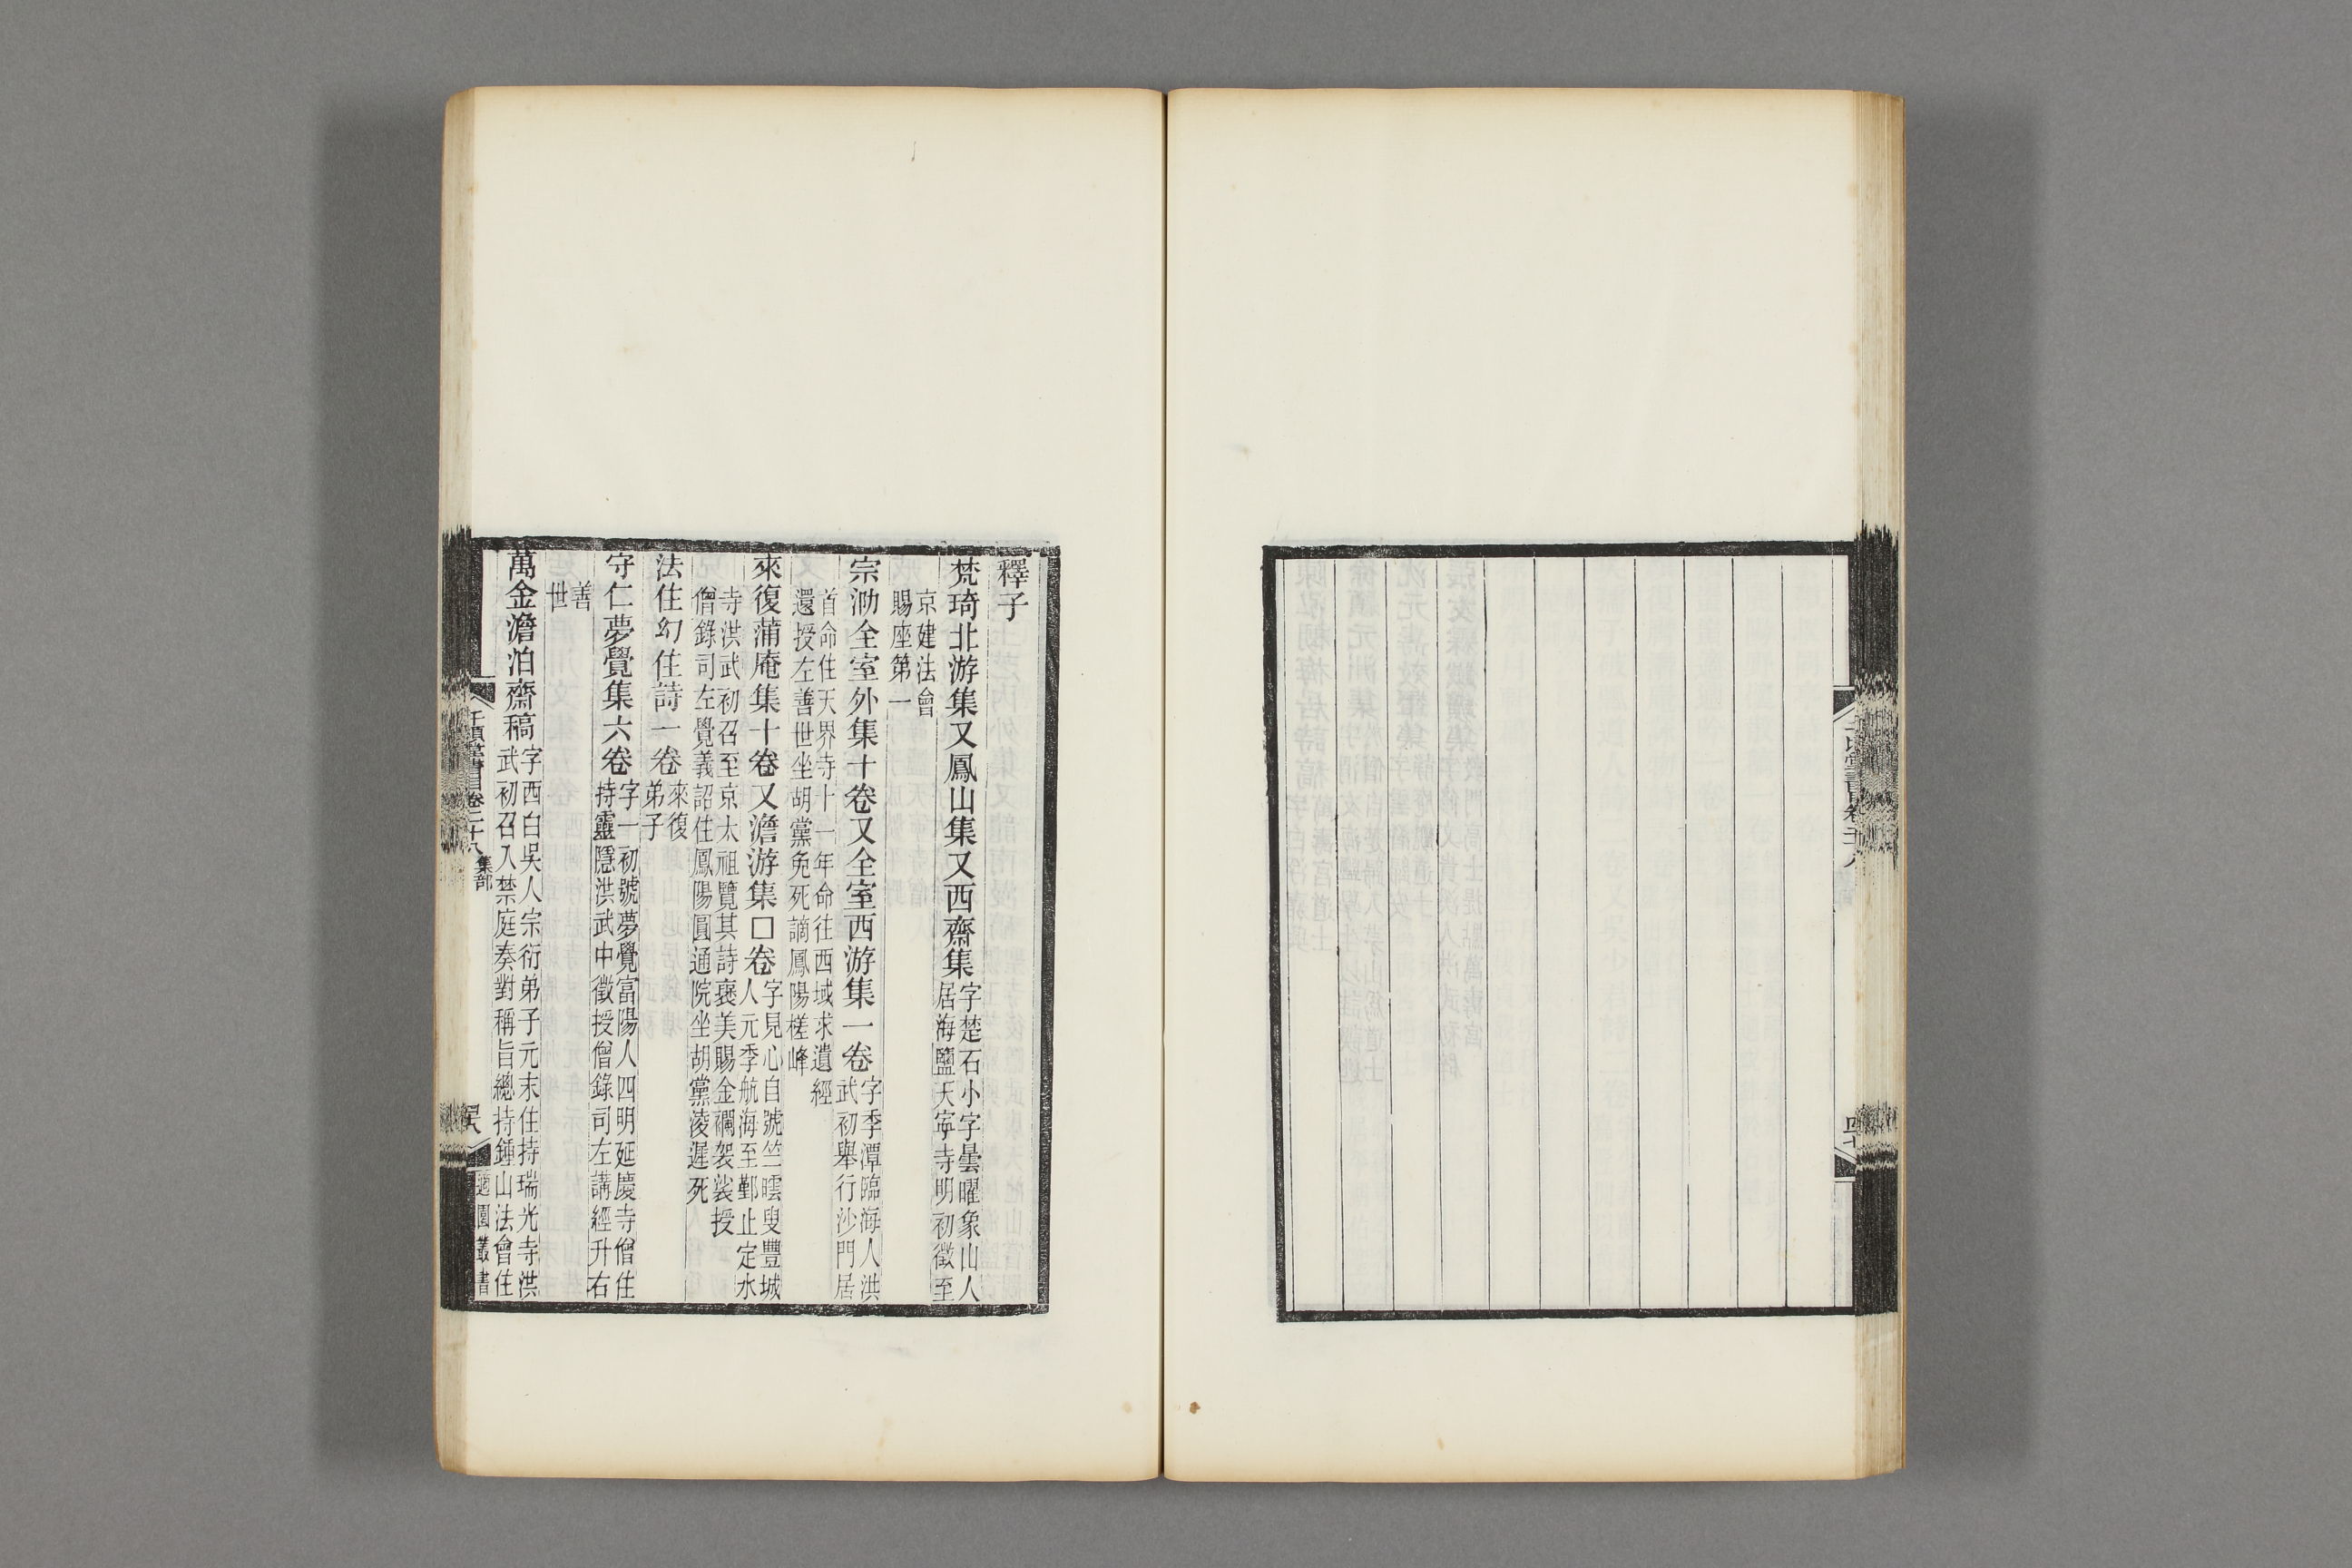 釋子
梵琦北游集又鳳山集又西齋集字楚石小字曇曜象山人
居海鹽天寧寺明初徵至
京建法會
賜座第一
宗泐全室外集十卷又全室西游集一卷字季潭臨海人洪
武初舉行沙門居
首命住天界寺十一年命往西域求遺經
還授左善世坐胡黨免死謫鳳陽槎峰
來復蒲庵集十卷又澹游集囗卷字見心自號竺曇叟豐城
人元季航海至鄞止定水
寺洪武初召至京太祖覽其詩褒美賜金襴袈裟授
僧錄司左覺義詔住鳳陽圓通院坐胡黨凌遲死
法住幻住詩一卷來復
弟子
守仁夢覺集六卷字一初號夢覺富陽人四明延慶寺僧住
持靈隱洪武中徵授僧錄司左講經升右
善
世
萬金澹泊齋稿字西白吳人宗衍弟子元末住持瑞光寺洪
武初召入禁庭奏對稱旨總持鍾山法會住
千頃堂書目卷二十八 集部
適園叢書